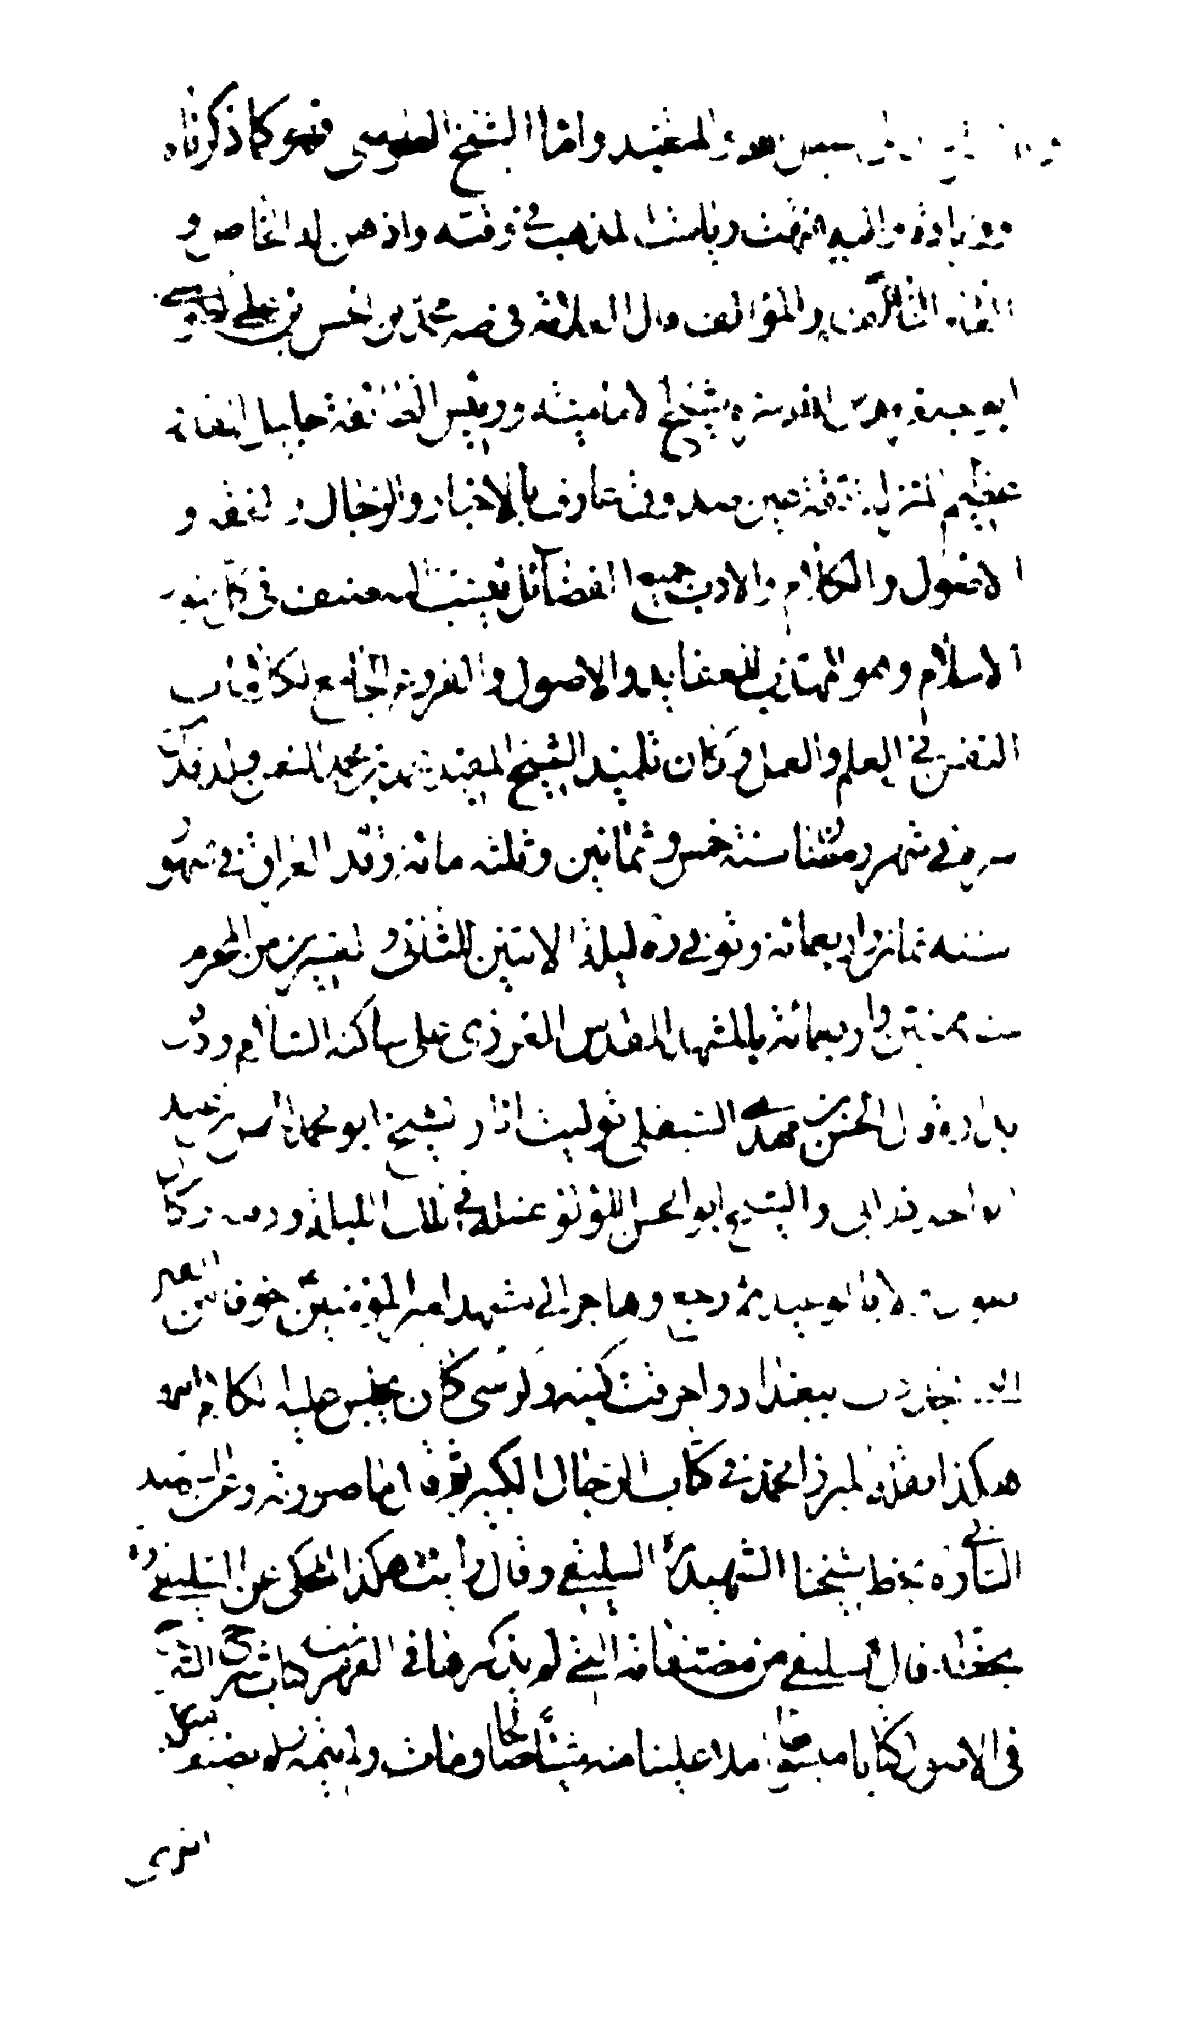 والمفيد واما الشيخ الطوسي فهو كما ذكرناه
وزيادة واليه انتهت رياسة المذهب في وقته واذعن له الخاص و
العام التأليف والمؤالف قال العلامة في صه محمد بن الحسن بن علي الطوسي
ابو جعفر قدس الله سره شيخ الامامية ورئيس الطائفة جليل القدر
عظيم المنزلة ثقة عين صدوق عارف بالاخبار والرجال والفقه و
الاصول والكلام والادب جميع الفضائل تنسب اليه صنف في كل فنون
الاسلام وهو المهذب للعقايد والاصول والفروع الجامع لكمالات
النفس في العلم والعمل وكان تلميذ الشيخ المفيد محمد بن محمد النعمن ولد قدس
سره في شهر رمضان سنة خمس وثمانين وثلثه مائة وقدم العراق في شهور
سنه ثمان واربعمائة وتوفي ره ليلة الاثنين الثاني والعشرين من المحرم
سنه ستين واربعمائة بالمشهد المقدس الغروي على ساكنه السلام ودفن
بداره قال الحسن بن مهدي السليقي توليت انا والشيخ ابو محمد الحسن بن عبد
الواحد زربي والشيخ ابو الحسن اللؤلؤي غسله في تلك الليلة ودفنه وكان
يقول اولا بالوعيد ثم رجع وهاجر الى مشهد امير المؤمنين خوفا من الفتن
التي تجددت ببغداد واحرقت كتبه وكرسي كان يجلس عليه للكلام انتهى
هكذا نقله الميرزا محمد في كتاب الرجال الكبير ثم قال ما صورته وعن الشهيد
الثاني ره بخط شيخنا الشهيد السليقي وقال رايت هكذا المحكي عن السليقي ره
بخطه قال السليقي من مصنفاته التي لم يذكرها في الفهرست كتاب شرح الشرح
في الاصول كتابا مبسوطا املا علينا منه شيئا صالحا ومات ولم يتمه ولم يصنف مثله
انتهى